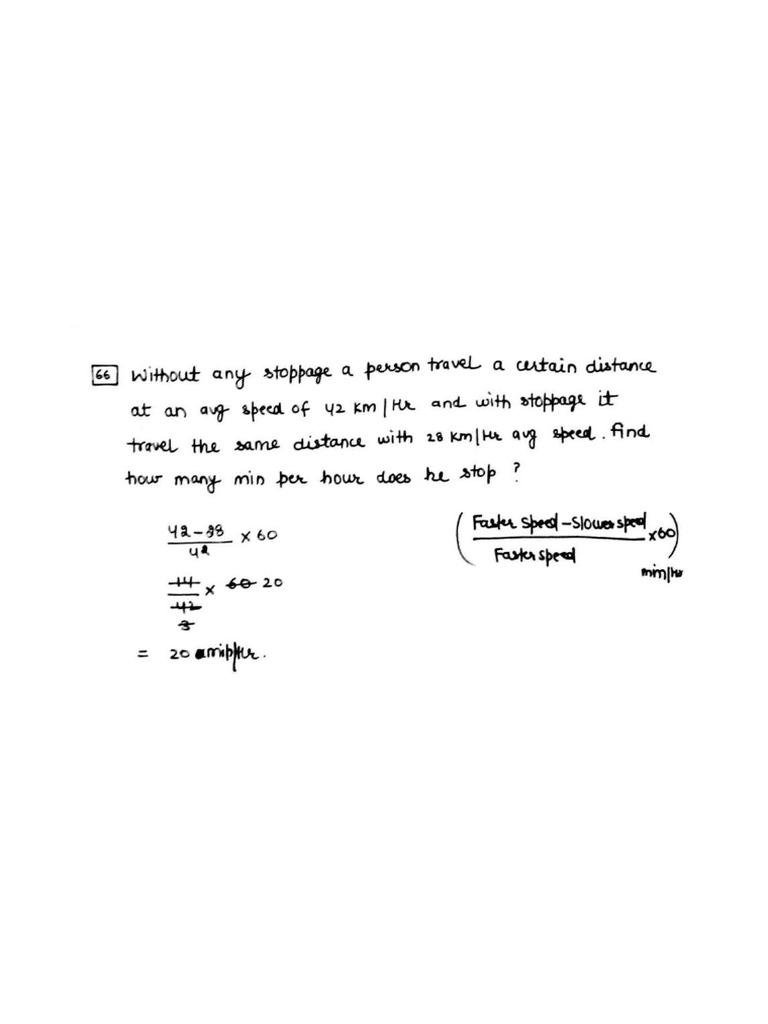 66 Without any stoppage a person travel a certain distance
at an avg speed of 42 KM/Hr and with stoppage it
travel the same distance with 28 KM/Hr avg speed. find
how many min per hour does he stop ?
42-28/42 × 60
(Faster Speed - Slower speed/Faster speed ×60) min/hr
14/42 × 60 20
3
= 20 min/Hr.